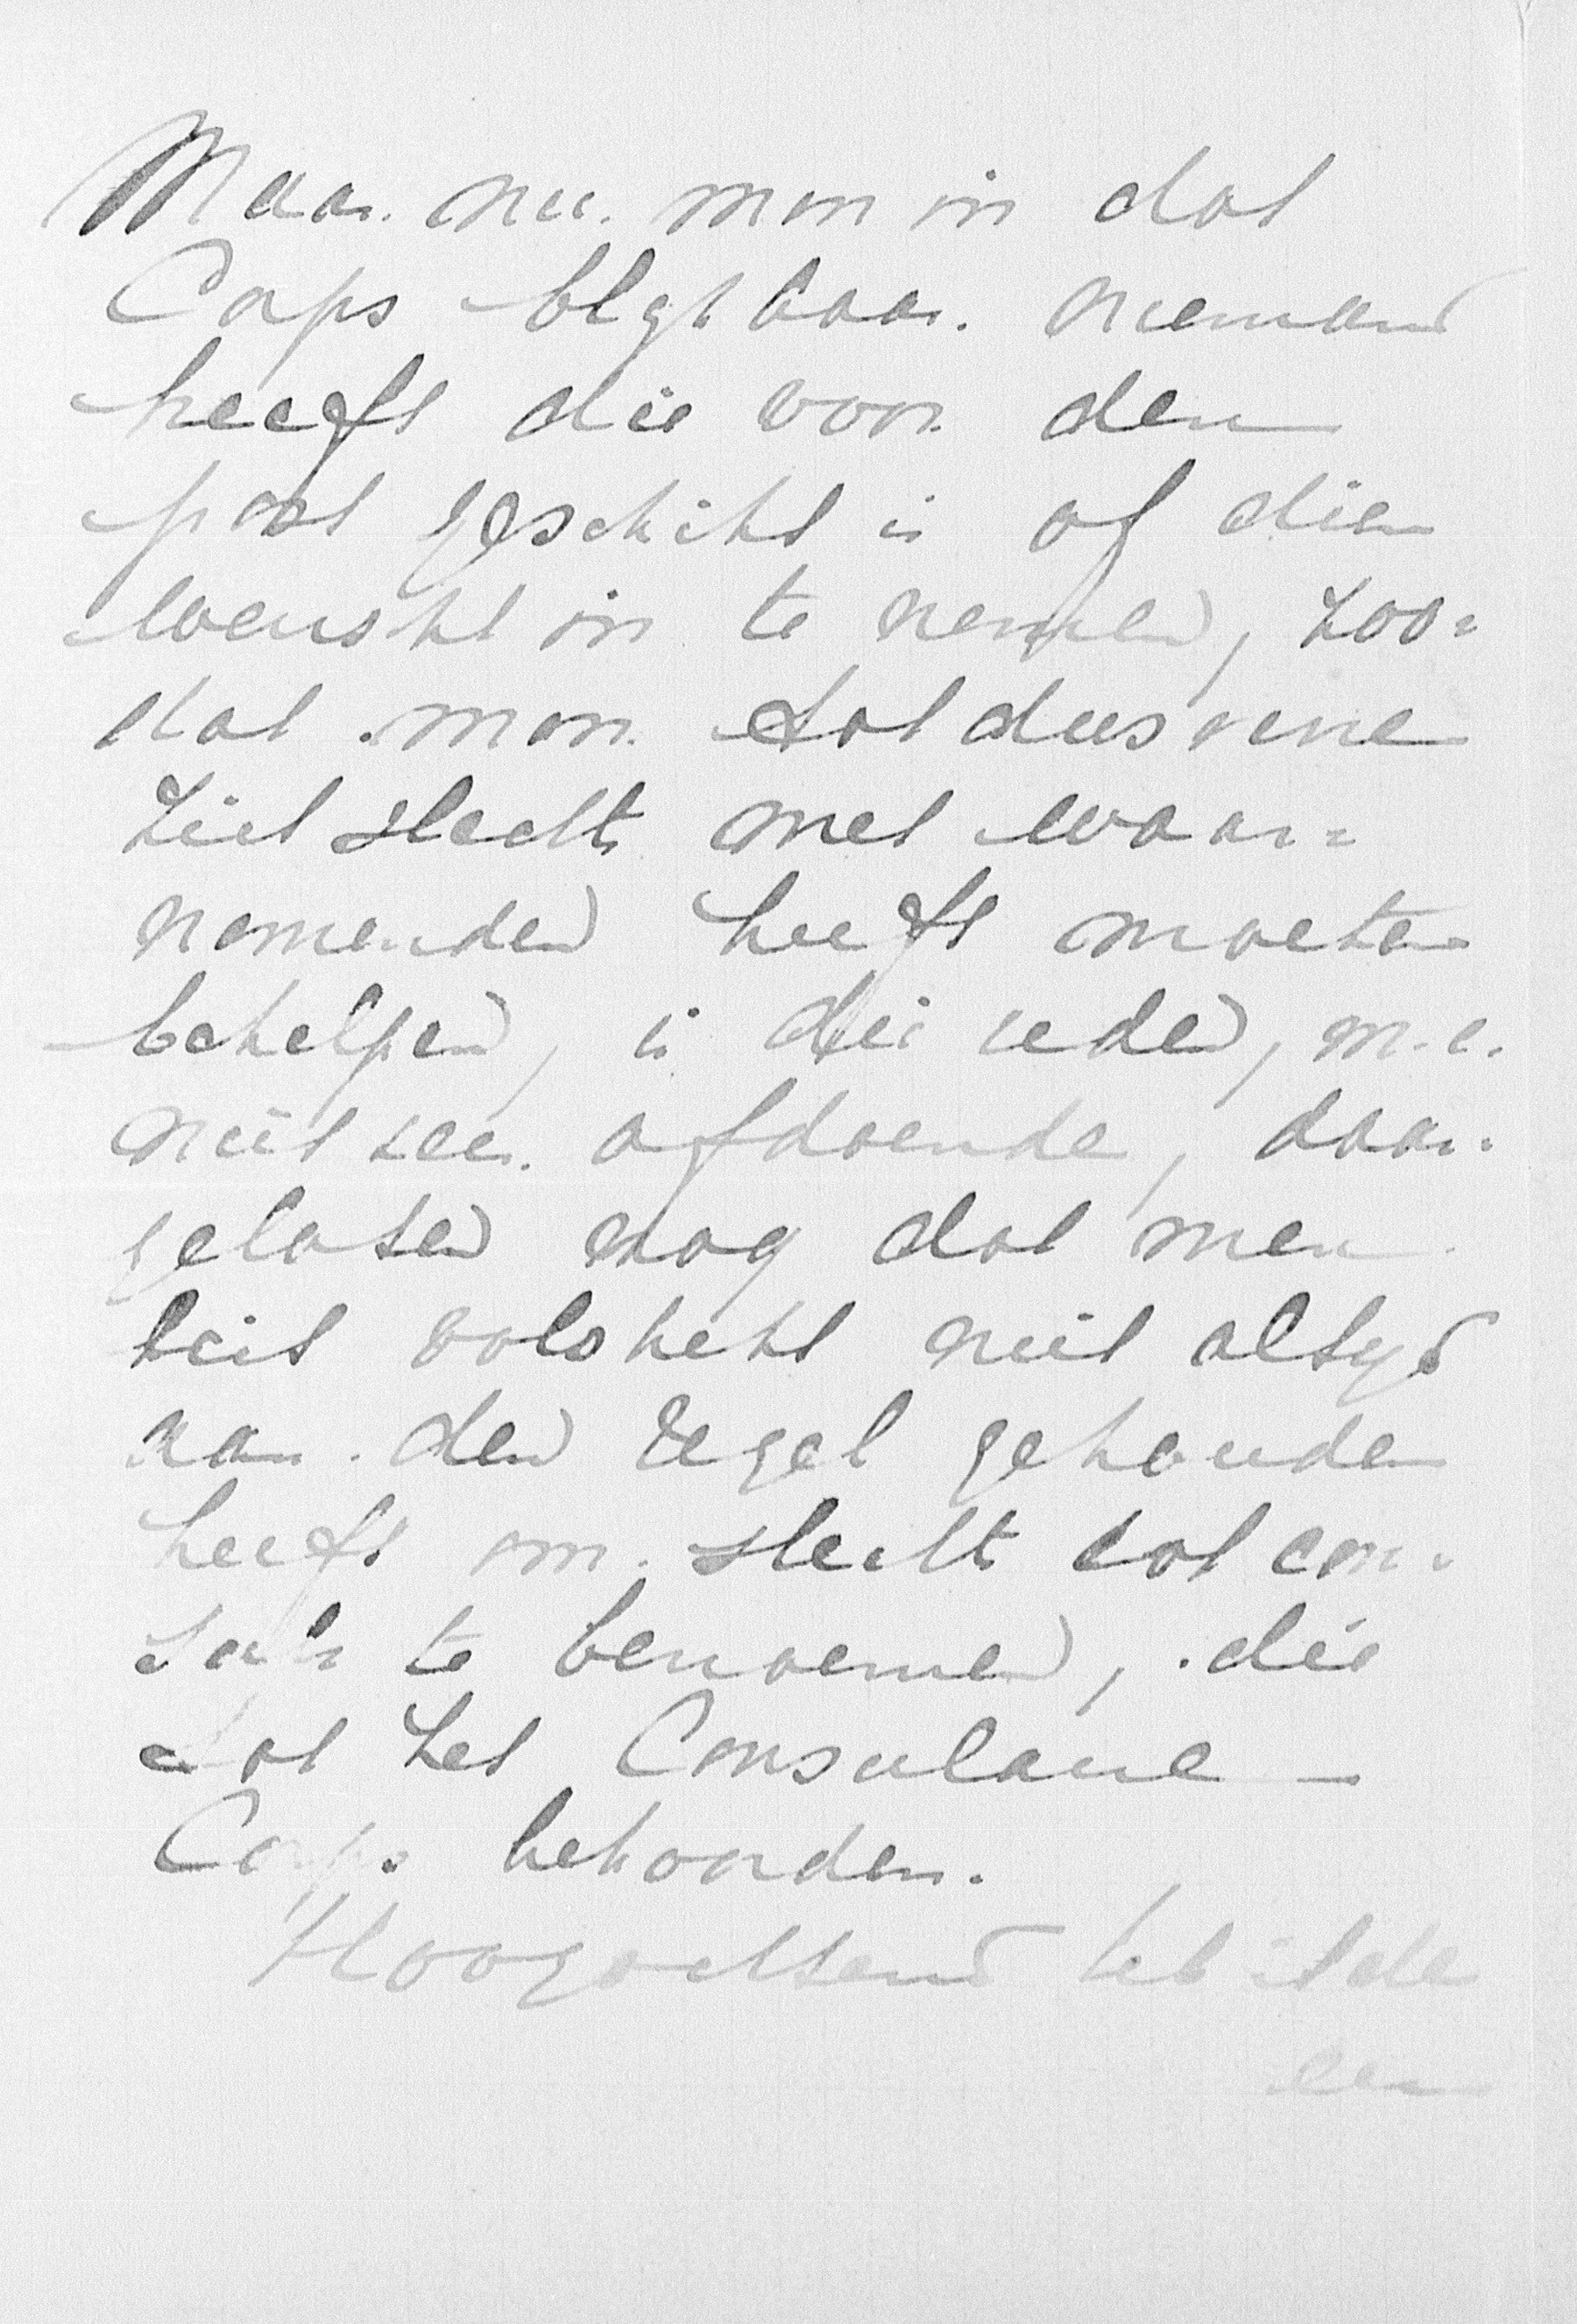 Maar nu men in dat
Corps blijkbaar niemand
heeft die voor den
post geschikt is of dien
wenscht in te nemen, zoo=
dat men tot dusverre
zich slechts met waar=
nemenden heeft moeten
behelpen, is die reden, m.i.
niet zeer afdoende, daar=
gelaten nog dat men
zich volstrekt niet altijd
aan den regel gehouden
heeft om slechts tot con=
suls te benoemen, die
tot het Consulaire
Corps behoorden.
Hoogachtend heb ik de
eer